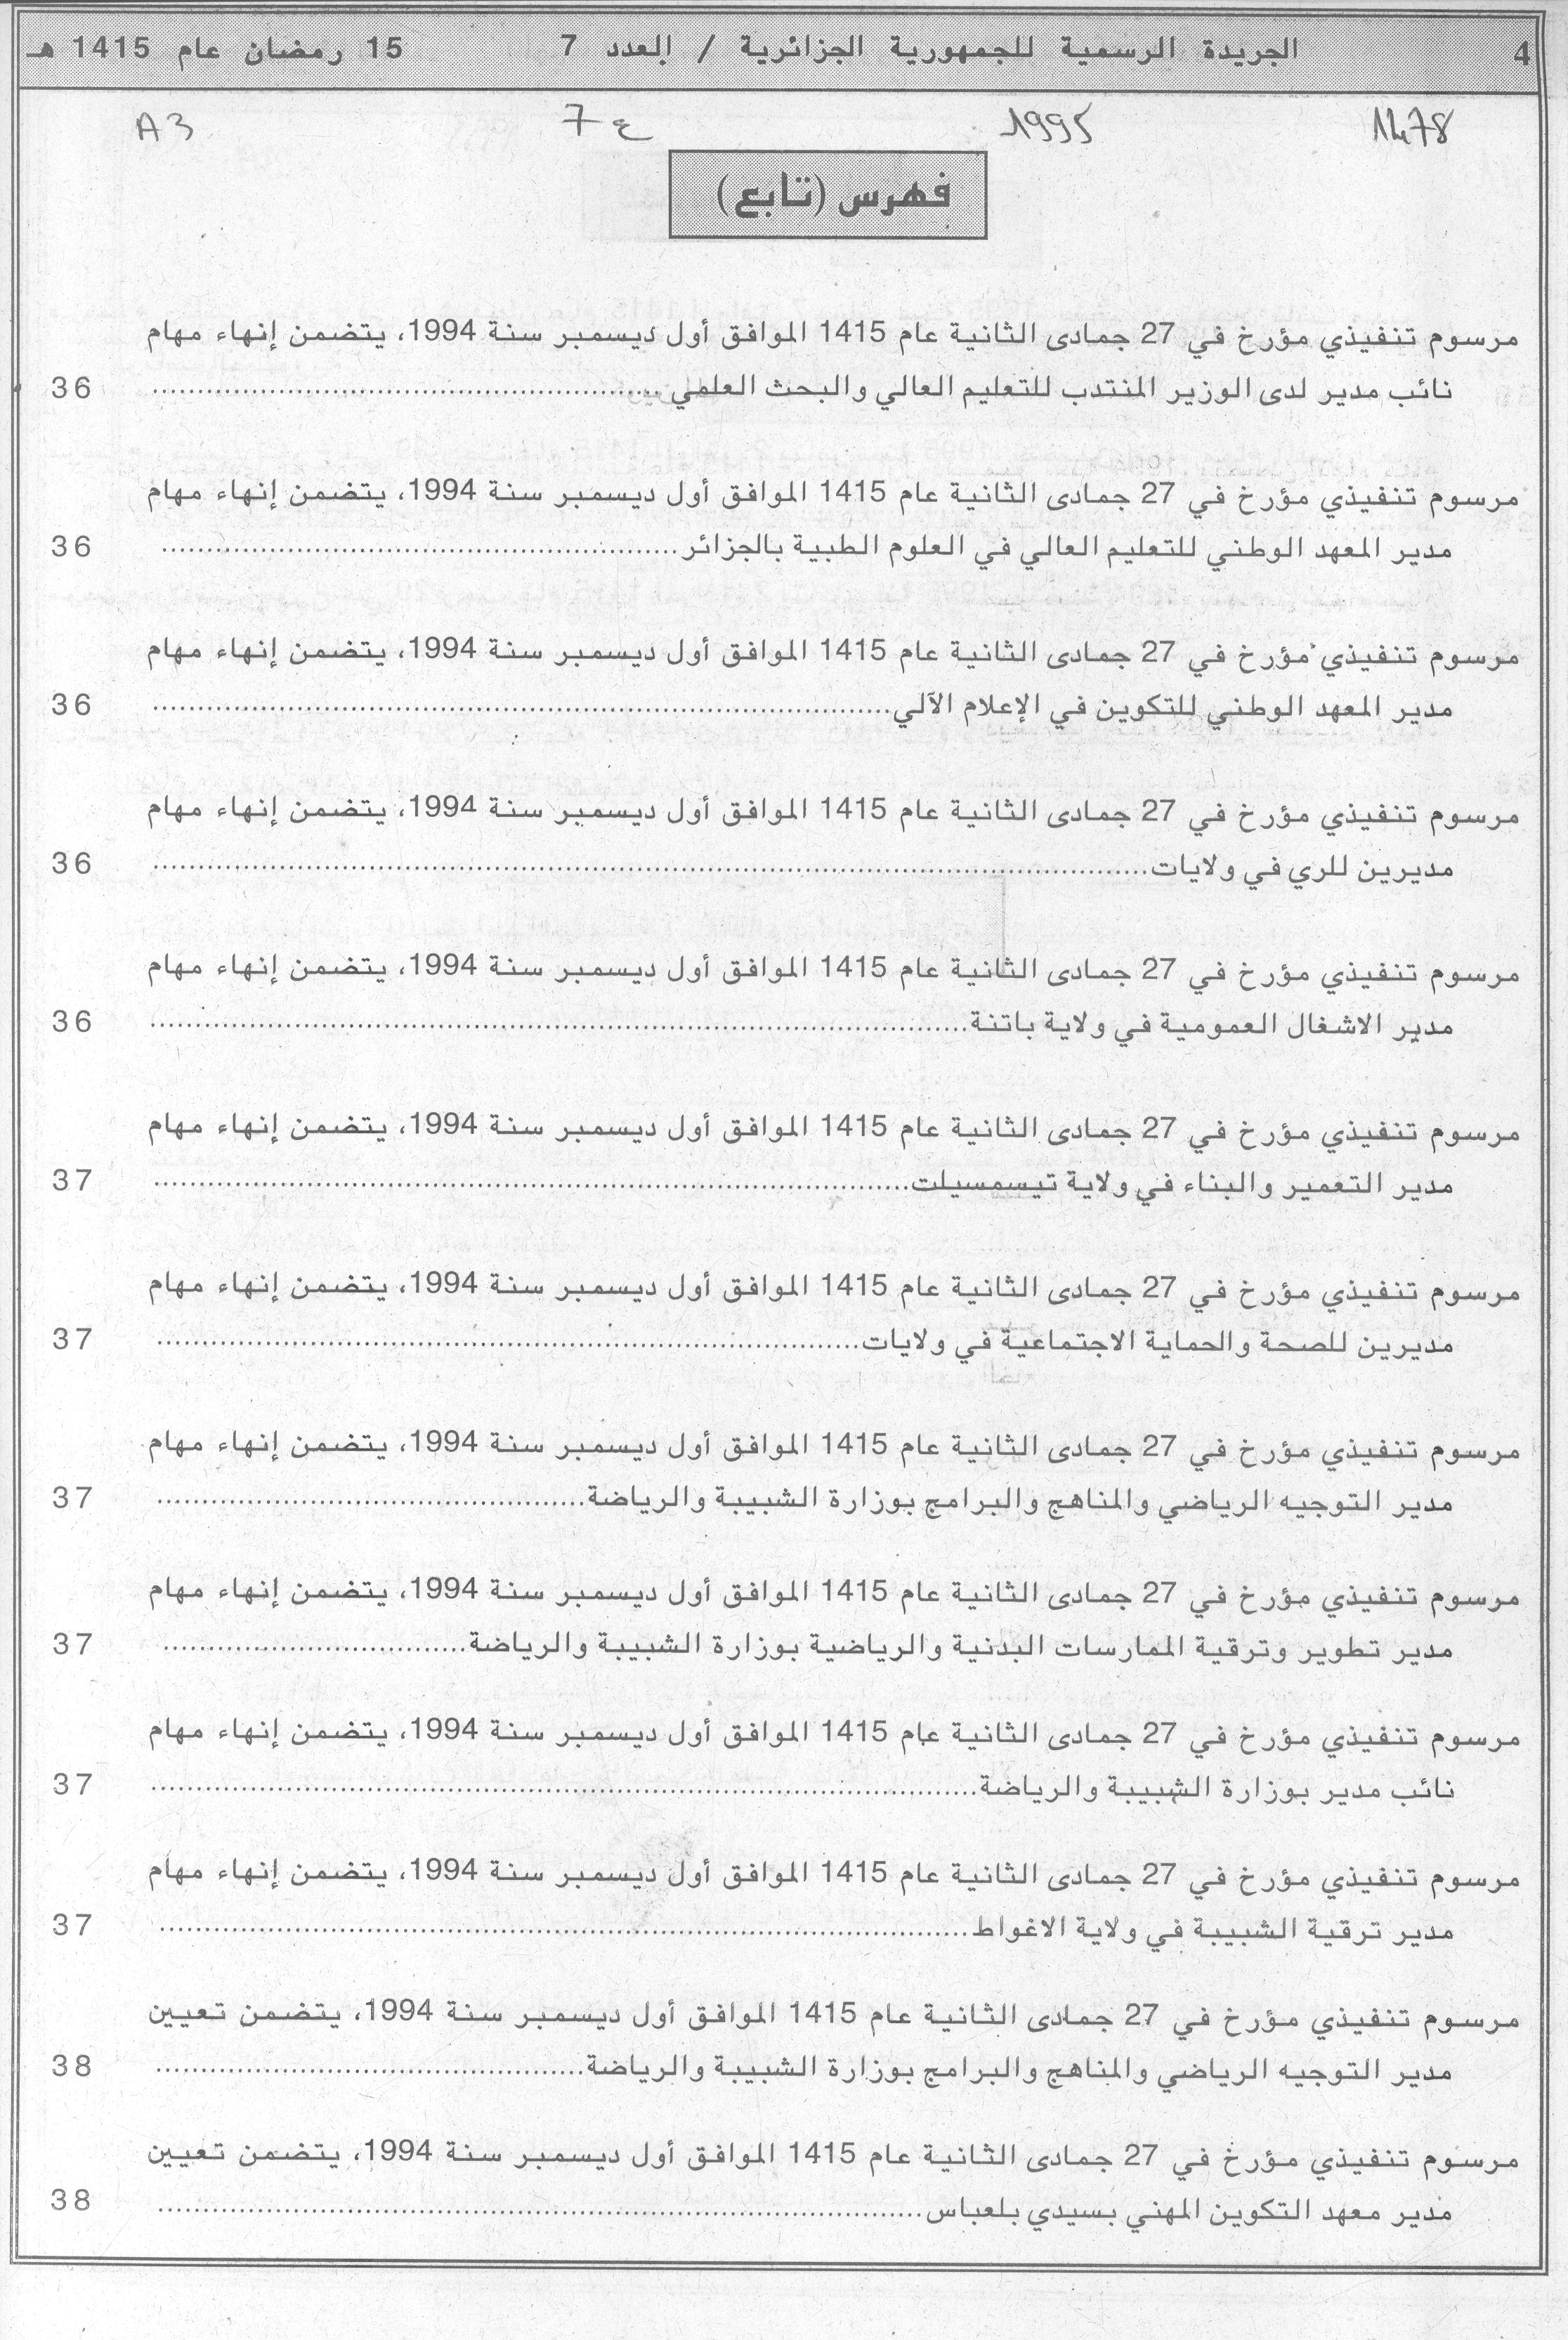 4 الجريدة الرسمية للجمهورية الجزائرية / العدد 7 15 رمضان عام 1415 هـ
1478 1995 ع 7 A3
فهرس (تابع)
مرسوم تنفيذي مؤرخ في 27 جمادى الثانية عام 1415 الموافق أول ديسمبر سنة 1994، يتضمن إنهاء مهام
نائب مدير لدى الوزير المنتدب للتعليم العالي والبحث العلمي ........................................ 36
مرسوم تنفيذي مؤرخ في 27 جمادى الثانية عام 1415 الموافق أول ديسمبر سنة 1994، يتضمن إنهاء مهام
مدير المعهد الوطني للتعليم العالي في العلوم الطبية بالجزائر........................................ 36
مرسوم تنفيذي مؤرخ في 27 جمادى الثانية عام 1415 الموافق أول ديسمبر سنة 1994، يتضمن إنهاء مهام
مدير المعهد الوطني للتكوين في الإعلام الآلي........................................ 36
مرسوم تنفيذي مؤرخ في 27 جمادى الثانية عام 1415 الموافق أول ديسمبر سنة 1994، يتضمن إنهاء مهام
مديرين للري في ولايات........................................ 36
مرسوم تنفيذي مؤرخ في 27 جمادى الثانية عام 1415 الموافق أول ديسمبر سنة 1994، يتضمن إنهاء مهام
مدير الاشغال العمومية في ولاية باتنة........................................ 36
مرسوم تنفيذي مؤرخ في 27 جمادى الثانية عام 1415 الموافق أول ديسمبر سنة 1994، يتضمن إنهاء مهام
مدير التعمير والبناء في ولاية تيسمسيلت........................................ 37
مرسوم تنفيذي مؤرخ في 27 جمادى الثانية عام 1415 الموافق أول ديسمبر سنة 1994، يتضمن إنهاء مهام
مديرين للصحة والحماية الاجتماعية في ولايات........................................ 37
مرسوم تنفيذي مؤرخ في 27 جمادى الثانية عام 1415 الموافق أول ديسمبر سنة 1994، يتضمن إنهاء مهام
مدير التوجيه الرياضي والمناهج والبرامج بوزارة الشبيبة والرياضة........................................ 37
مرسوم تنفيذي مؤرخ في 27 جمادى الثانية عام 1415 الموافق أول ديسمبر سنة 1994، يتضمن إنهاء مهام
مدير تطوير وترقية الممارسات البدنية والرياضية بوزارة الشبيبة والرياضة........................................ 37
مرسوم تنفيذي مؤرخ في 27 جمادى الثانية عام 1415 الموافق أول ديسمبر سنة 1994، يتضمن إنهاء مهام
نائب مدير بوزارة الشبيبة والرياضة........................................ 37
مرسوم تنفيذي مؤرخ في 27 جمادى الثانية عام 1415 الموافق أول ديسمبر سنة 1994، يتضمن إنهاء مهام
مدير ترقية الشبيبة في ولاية الاغواط........................................ 37
مرسوم تنفيذي مؤرخ في 27 جمادى الثانية عام 1415 الموافق أول ديسمبر سنة 1994، يتضمن تعيين
مدير التوجيه الرياضي والمناهج والبرامج بوزارة الشبيبة والرياضة........................................ 38
مرسوم تنفيذي مؤرخ في 27 جمادى الثانية عام 1415 الموافق أول ديسمبر سنة 1994، يتضمن تعيين
مدير معهد التكوين المهني بسيدي بلعباس........................................ 38